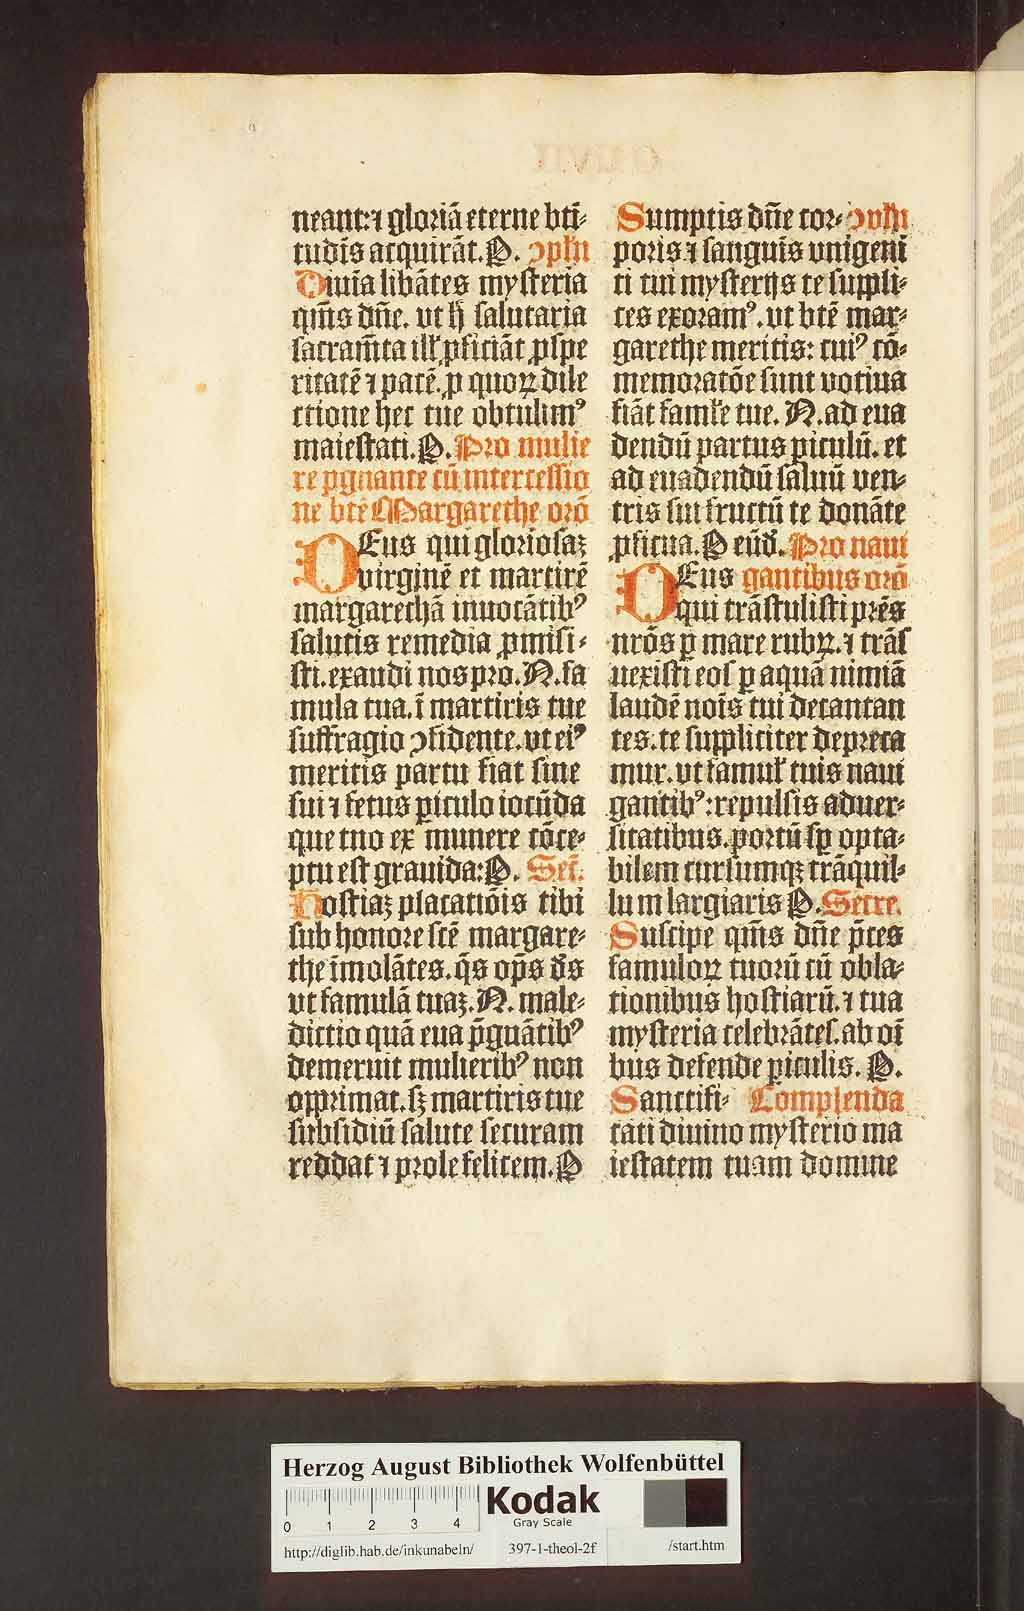 neant: ⁊ gloriā eterne bti-
tudīs acquirāt. P. ↄplēn
Diuīa libātes mysteria
qm̄s dn̄e. vt h̄ salutaria
sacram̄ta ill' ꝓficiāt ꝓspe
ritatē ⁊ pacē. ꝓ quoꝝ dile
ctione hec tue obtulimꝰ
maiestati. P. Pro mulie
re pgnante cū intercessio
ne btē Margarethe orō
DEus qui gloriosaꝫ
virginē et martirē
margarethā inuocātibꝰ
salutis remedia ꝓmisi-
sti. exaudi nos pro. N. fa
mula tua. ī martiris tue
suffragio ↄfidente. vt eiꝰ
meritis partu fiat sine
sui ⁊ fetus ꝑiculo iocūda
que tuo ex munere cōce-
ptu est grauida: P. Sec̄.
Hostiaꝫ placatiōis tibi
sub honore scē margare-
the īmolātes. q̄s op̄s d̄s
vt famulā tuaꝫ. N. male-
dictio quā eua p̄gnātibꝰ
demeruit mulieribꝰ non
opprimat. sꝫ martiris tue
subsidiū salute securam
reddat ⁊ prole felicem. P
Sumptis dn̄e cor- ↄplēn
poris ⁊ sanguīs vnigeni
ti tui mysterijs te suppli-
ces exoramꝰ. vt btē mar-
garethe meritis: cuiꝰ cō-
memoratōe sunt votiua
fiāt famul'e tue. N. ad eua
dendū partus ꝑiculū. et
ad euadendū saluū ven-
tris sui fructū te donāte
ꝓficua. P eūd̄. Pro naui
DEus gantibus orō
qui trāstulisti pr̄es
nr̄os ꝑ mare rubꝝ. ⁊ trās
uexisti eos ꝑ aquā nimiā
laudē noīs tui decantan
tes. te suppliciter depreca
mur. vt famul' tuis naui
gantibꝰ: repulsis aduer-
sitatibus. portū sꝑ opta-
bilem cursumqꝫ trāquil-
lum largiaris P. Secre.
Suscipe qm̄s dn̄e p̄ces
famuloꝝ tuorū cū obla-
tionibus hostiarū. ⁊ tua
mysteria celebrātes. ab oī
bus defende ꝑiculis. P.
Sanctifi- Complenda
cati diuino mysterio ma
iestatem tuam domine
Herzog August Bibliothek Wolfenbüttel
0 1 2 3 4
Kodak
Gray Scale
http://diglib.hab.de/inkunabeln/ 397-1-theol-2f /start.htm